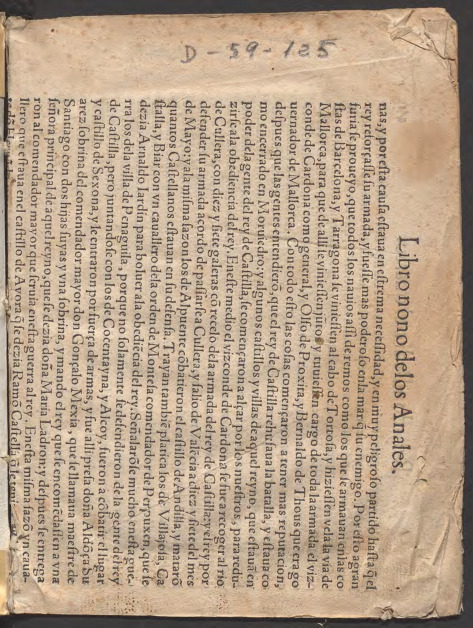 D-59-125
Libro nono de los Anales.
nas, y por esta causa estaua en estrema necessidad, y en muy peligroso partido hasta q̃ el
rey reforçasse su armada, y fuesse mas poderoso enla mar q̃ su enemigo. Por esto a gran
furia se proueyo, que todos los nauios assi de remos como los que se armauan enlas co
stas de Barcelona, y Tarragona se viniessen al cabo de Tortosa, y hiziessen vela la via de
Mallorca, para que de alli se viniessen juntos: y tuuiessen cargo de toda la armada el viz-
conde de Cardona como general, y Olfo de Proxita, y Bernaldo de Thous que era go
uernador de Mallorca. Con todo esto las cosas començaron a tener mas reputacion,
despues que las gentes entendierõ, que el rey de Castilla rehusaua la batalla, y estaua co
mo encerrado en Moruiedro: y algunos castillos y villas de aquel reyno, que estauã en
poder dela gente del rey de Castilla, se començaron a alçar por los nuestros, para redu-
zirse ala obediencia del rey. En este medio el vizconde de Cardona se fue a recoger al rio
de Cullera, con diez y siete galeras cõ recelo dela armada del rey de Castilla: y el rey por
defender su armada acordo de passarse a Cullera, y salio de Valẽcia a diez y siete del mes
de Mayo: y ala misma sazon los de Alpuente cõbatieron el castillo de Andilla, y matarõ
quantos Castellanos estauan en su defensa. Trayan tambiẽ platica los de Villajoïa, Ca
stalla, y Biar con vn cauallero dela orden de Montesa comendador de Perpuxen, que se
dezia Arnaldo Iardin para boluer ala obediẽcia del rey. Señalarõse mucho en esta gue-
rra los dela villa de Penaguila, porque no solamente se defendieron de la gente del rey
de Castilla, pero juntandose con los de Cocentayna, y Alcoy, fueron a cõbatir el lugar
y castillo de Sexona, y le entraron por fuerça de armas, y fue alli presa doña Aldõça Su
arez sobrina del comendador mayor don Gonçalo Mexia, que se llamaua maestre de
Santiago con dos hijas suyas y vna sobrina, y mando el rey que se encomẽdassen a vna
señora principal de aquel reyno, que se dezia doña Maria Ladron: y despues se entrega
ron al comendador mayor que seruia en esta guerra al rey. En esta misma sazõ vn caua-
llero que estaua en el castillo de Ayora q̃ se dezia Ramõ Castella